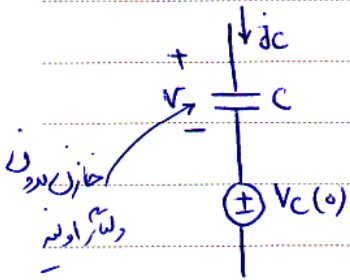 jc
+
V
C
−
خازن بدون
ولتاژ اولیه
±
Vc(0)